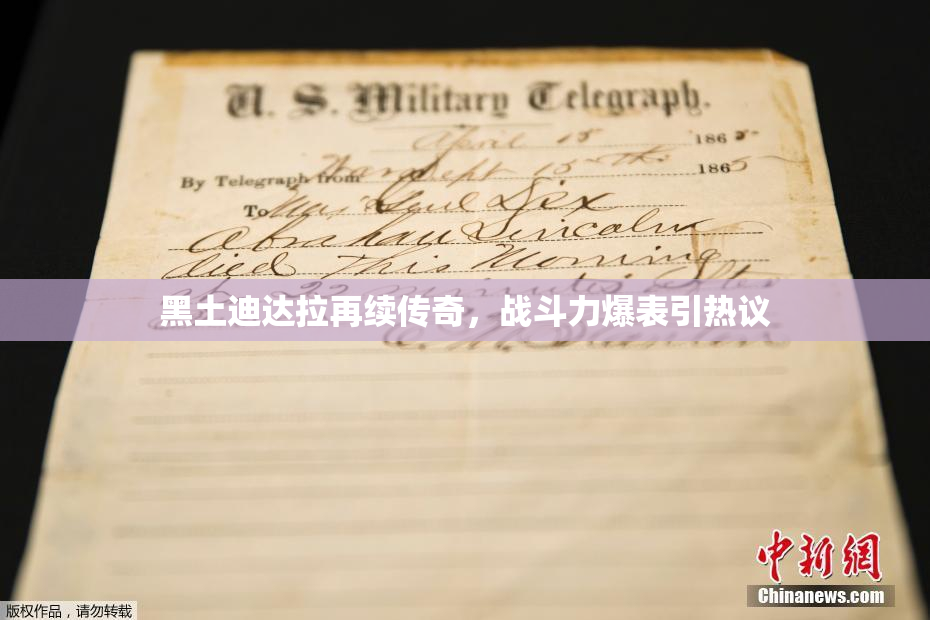 U. S. Military Telegraph.
April 15 1865
By Telegraph from War Dept 15th 1865
To Maj Genl Dix
Abraham Lincoln
died This Morning
at 22 minutes after
黑土迪达拉再续传奇，战斗力爆表引热议
E. M. Stanton
中新网
Chinanews.com
版权作品，请勿转载